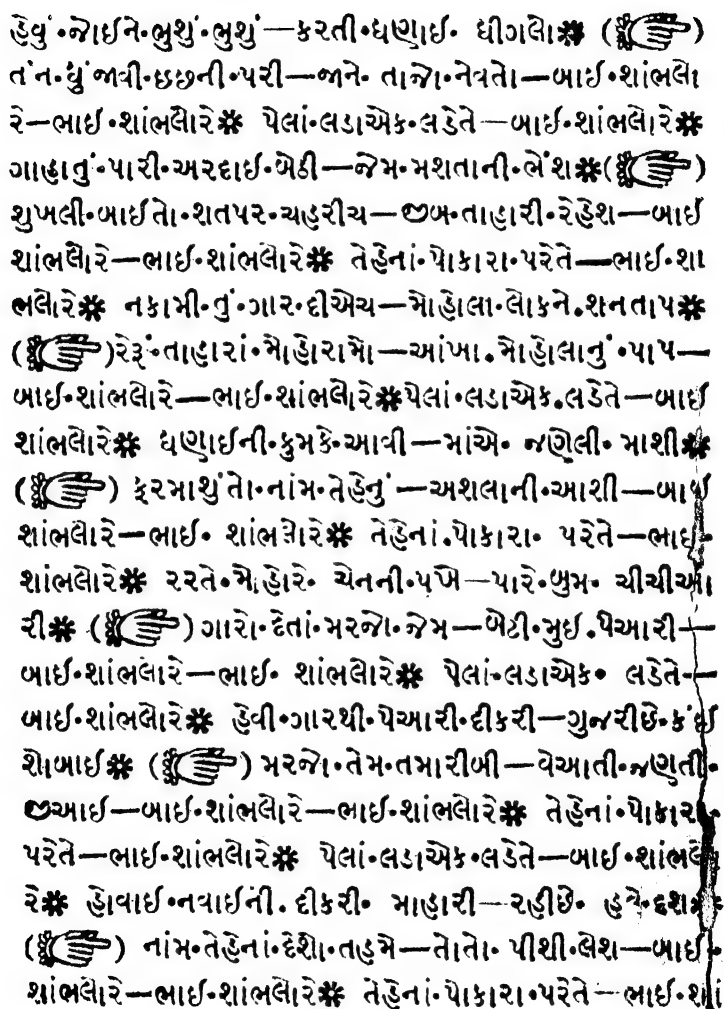 હેવું•જોઈને•ભુશું•ભુશું—કરતી•ધણાઈ• ધીગલો✽ (☞)
તંન•ધું જાવી•છછની•પરી—જાને• તાજો•નેવતો—બાઈ•શાંભલો
રે—ભાઈ•શાંભલોરે✽ પેલાં•લડાએક•લડેતે—બાઈ•શાંભલોરે✽
ગાહાતું•પારી•અરદાઈ•બેઠી—જેમ•મશતાની•ભેંશ✽(☞)
શુખલી•બાઈતો•શતપર•ચહરીચ—જીબ•તાહારી•રેહેશ—બાઈ
શાંભલોરે—ભાઈ•શાંભલોરે✽ તેહેનાં•પોકારા•પરેતે—ભાઈ•શા
ભલોરે✽ નકામી•તું•ગાર•દીએચ—મોહોલા•લોકને•શનતાપ✽
(☞)રેરૂં•તાહારાં•મોહોરામો—આંખા•મોહોલાનું•પાપ—
બાઈ•શાંભલોરે—ભાઈ•શાંભલોરે✽પેલાં•લડાએક•લડેતે—બાઈ
શાંભલોરે✽ ધણાઈની•કુમકે•આવી—માંએ• જણેલી• માશી✽
(☞) ફૂરમાશુંતો•નાંમ•તેહેનું—અશલાની•આશી—બાઈ
શાંભલોરે—ભાઈ• શાંભલોરે✽ તેહેનાં•પોકારા• પરેતે—ભાઈ•
શાંભલોરે✽ રરતે•મોહોરે• ચેનની•પખે—પારે•બુમ• ચીચીઆ
રી✽ (☞)ગારો•દેતાં•મરજો•જેમ—બેટી•મુઈ•પેઆરી—
બાઈ•શાંભલોરે—ભાઈ• શાંભલોરે✽ પેલાં•લડાએક• લડેતે—
બાઈ•શાંભલોરે✽ હેવી•ગારથી•પેઆરી•દીકરી—ગુજરીછે•કંઈ
શોબાઈ✽ (☞)મરજો•તેમ•તમારીબી—વેઆતી•જણતી•
જીઆઈ—બાઈ•શાંભલોરે—ભાઈ•શાંભલોરે✽ તેહેનાં•પોકારા•
પરેતે—ભાઈ•શાંભલોરે✽ પેલાં•લડાએક•લડેતે—બાઈ•શાંભલો
રે✽ હોવાઈ•નવાઈની• દીકરી• માહારી—રહીછે• હવે•દશ✽
(☞) નાંમ•તેહેનાં•દેશો•તહમે—તોતો• પીશી•લેશ—બાઈ•
શાંભલોરે—ભાઈ•શાંભલોરે✽ તેહેનાં•પોકારા•પરેતે—ભાઈ•શાં